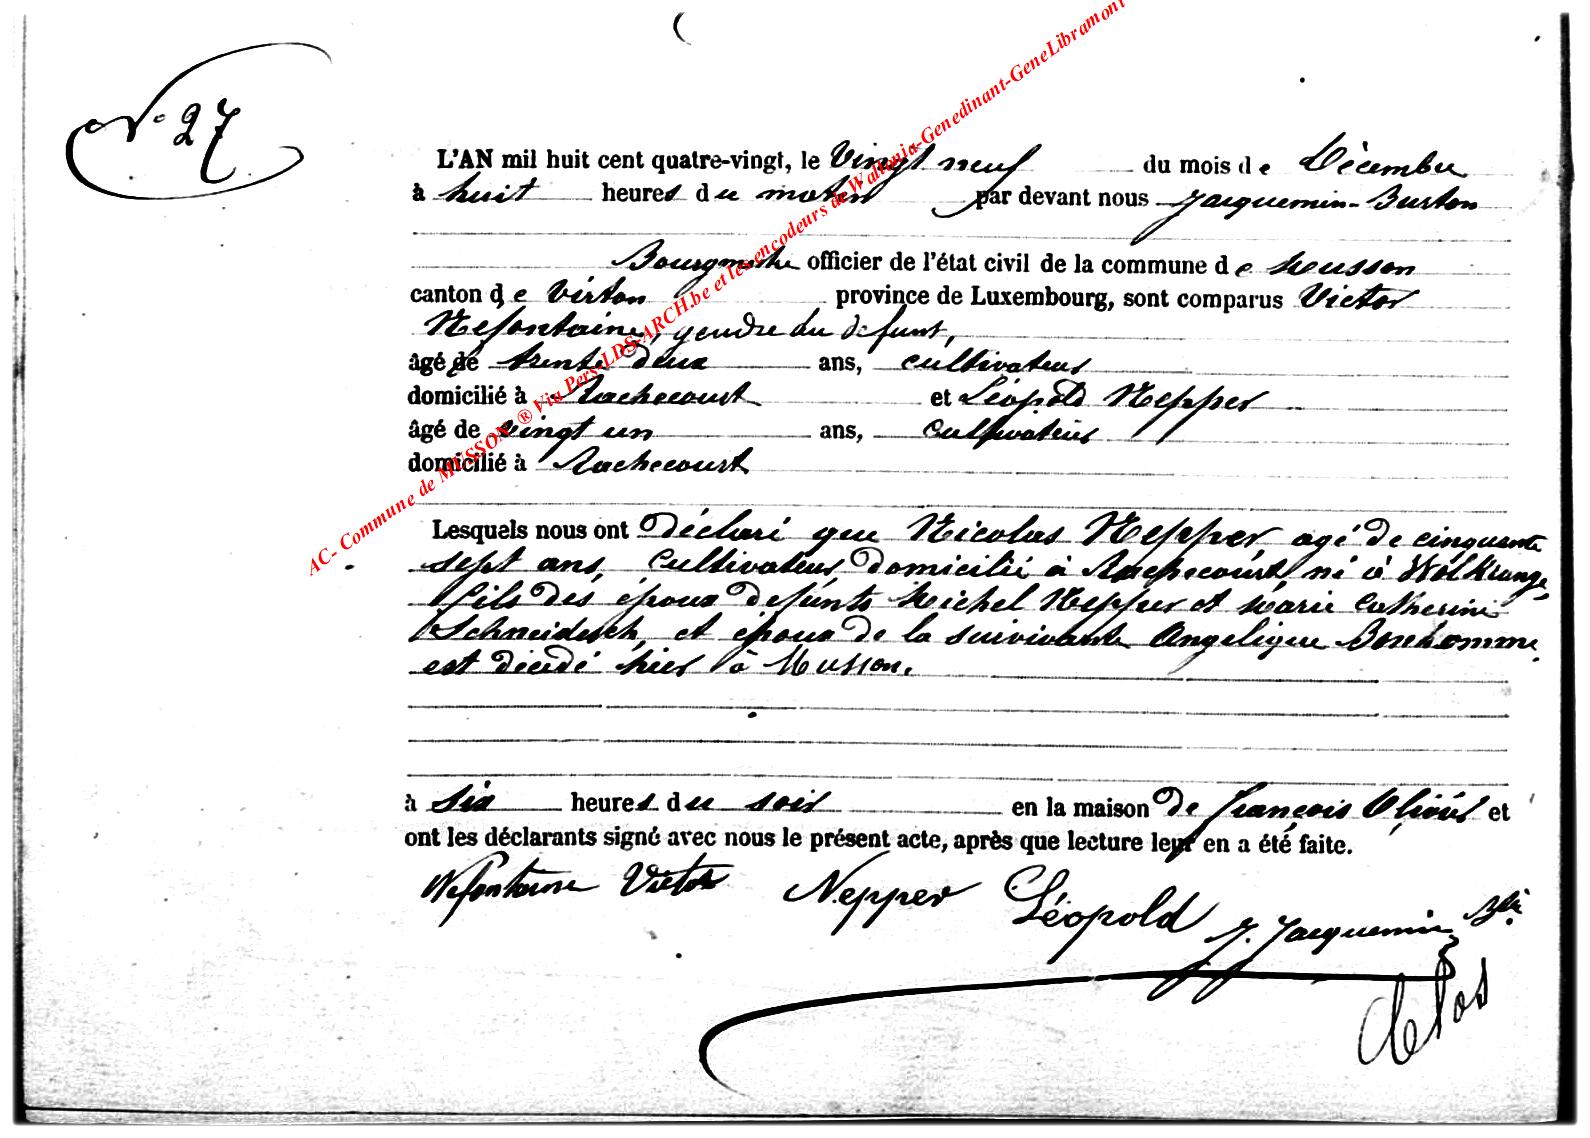 N° 27
L'AN mil huit cent quatre-vingt, le Vingt neuf du mois de Décembre
à huit heures du matin par devant nous Jacquemin-Burton
Bourgmestre officier de l'état civil de la commune de Musson
canton de Virton province de Luxembourg, sont comparus Victor
Nefontaine, gendre du defunt,
âgé de trente deux ans, cultivateur
domicilié à Rachecourt et Léopold Nepper
âgé de vingt un ans, cultivateur
domicilié à Rachecourt
Lesquels nous ont déclaré que Nicolas Nepper agé de cinquante
sept ans, cultivateur, domicilié à Rachecourt, né à Wolkrange,
fils des époux defunts Michel Nepper et Marie Catherine
et époux de la survivante Angelique Bonhomme
est décédé hier à Musson.
à six heures du soir en la maison de françois et
ont les déclarants signé avec nous le présent acte, après que lecture leur en a été faite.
Nefontaine Victor Nepper Léopold J. Jacquemin
Clos
AC- Commune de MUSSON ® Via Pers-LDS-ARCH.be et les encodeurs de Wallonia-Genedinant-GeneLibramont